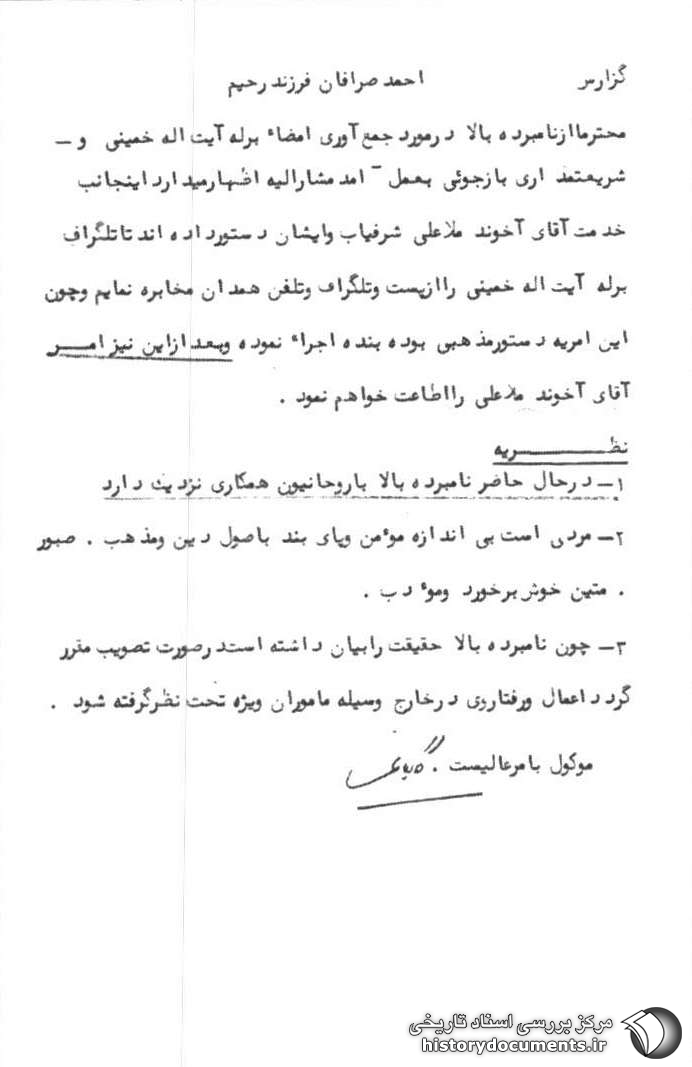 گزارش احمد صرافان فرزند رحیم
محترما از نامبرده بالا در مورد جمع آوری امضاء برله آیت اله خمینی و –
شریعتمداری بازجوئی بعمل آمد مشارالیه اظهار میدارد اینجانب
خدمت آقای آخوند ملاعلی شرفیاب وایشان دستور داده اند تا تلگراف
برله آیت اله خمینی را از پست وتلگراف وتلفن همدان مخابره نمایم وچون
این امریه دستور مذهبی بوده بنده اجراء نموده وبعد از این نیز امر
آقای آخوند ملاعلی را اطاعت خواهم نمود .
نظریه
۱– در حال حاضر نامبرده بالا با روحانیون همکاری نزدیک دارد
۲– مردی است بی اندازه موٴمن وپای بند باصول دین ومذهب . صبور
. متین خوش برخورد وموٴدب .
۳– چون نامبرده بالا حقیقت را بیان داشته است در صورت تصویب مقرر
گردد اعمال ورفتار وی در خارج وسیله ماموران ویژه تحت نظر گرفته شود .
موکول بامر عالیست .
مرکز بررسی اسناد تاریخی
historydocuments.ir